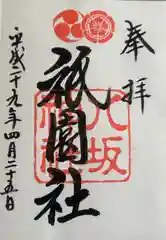 奉拝
祇園社
八坂神社
平成二十九年四月二十五日